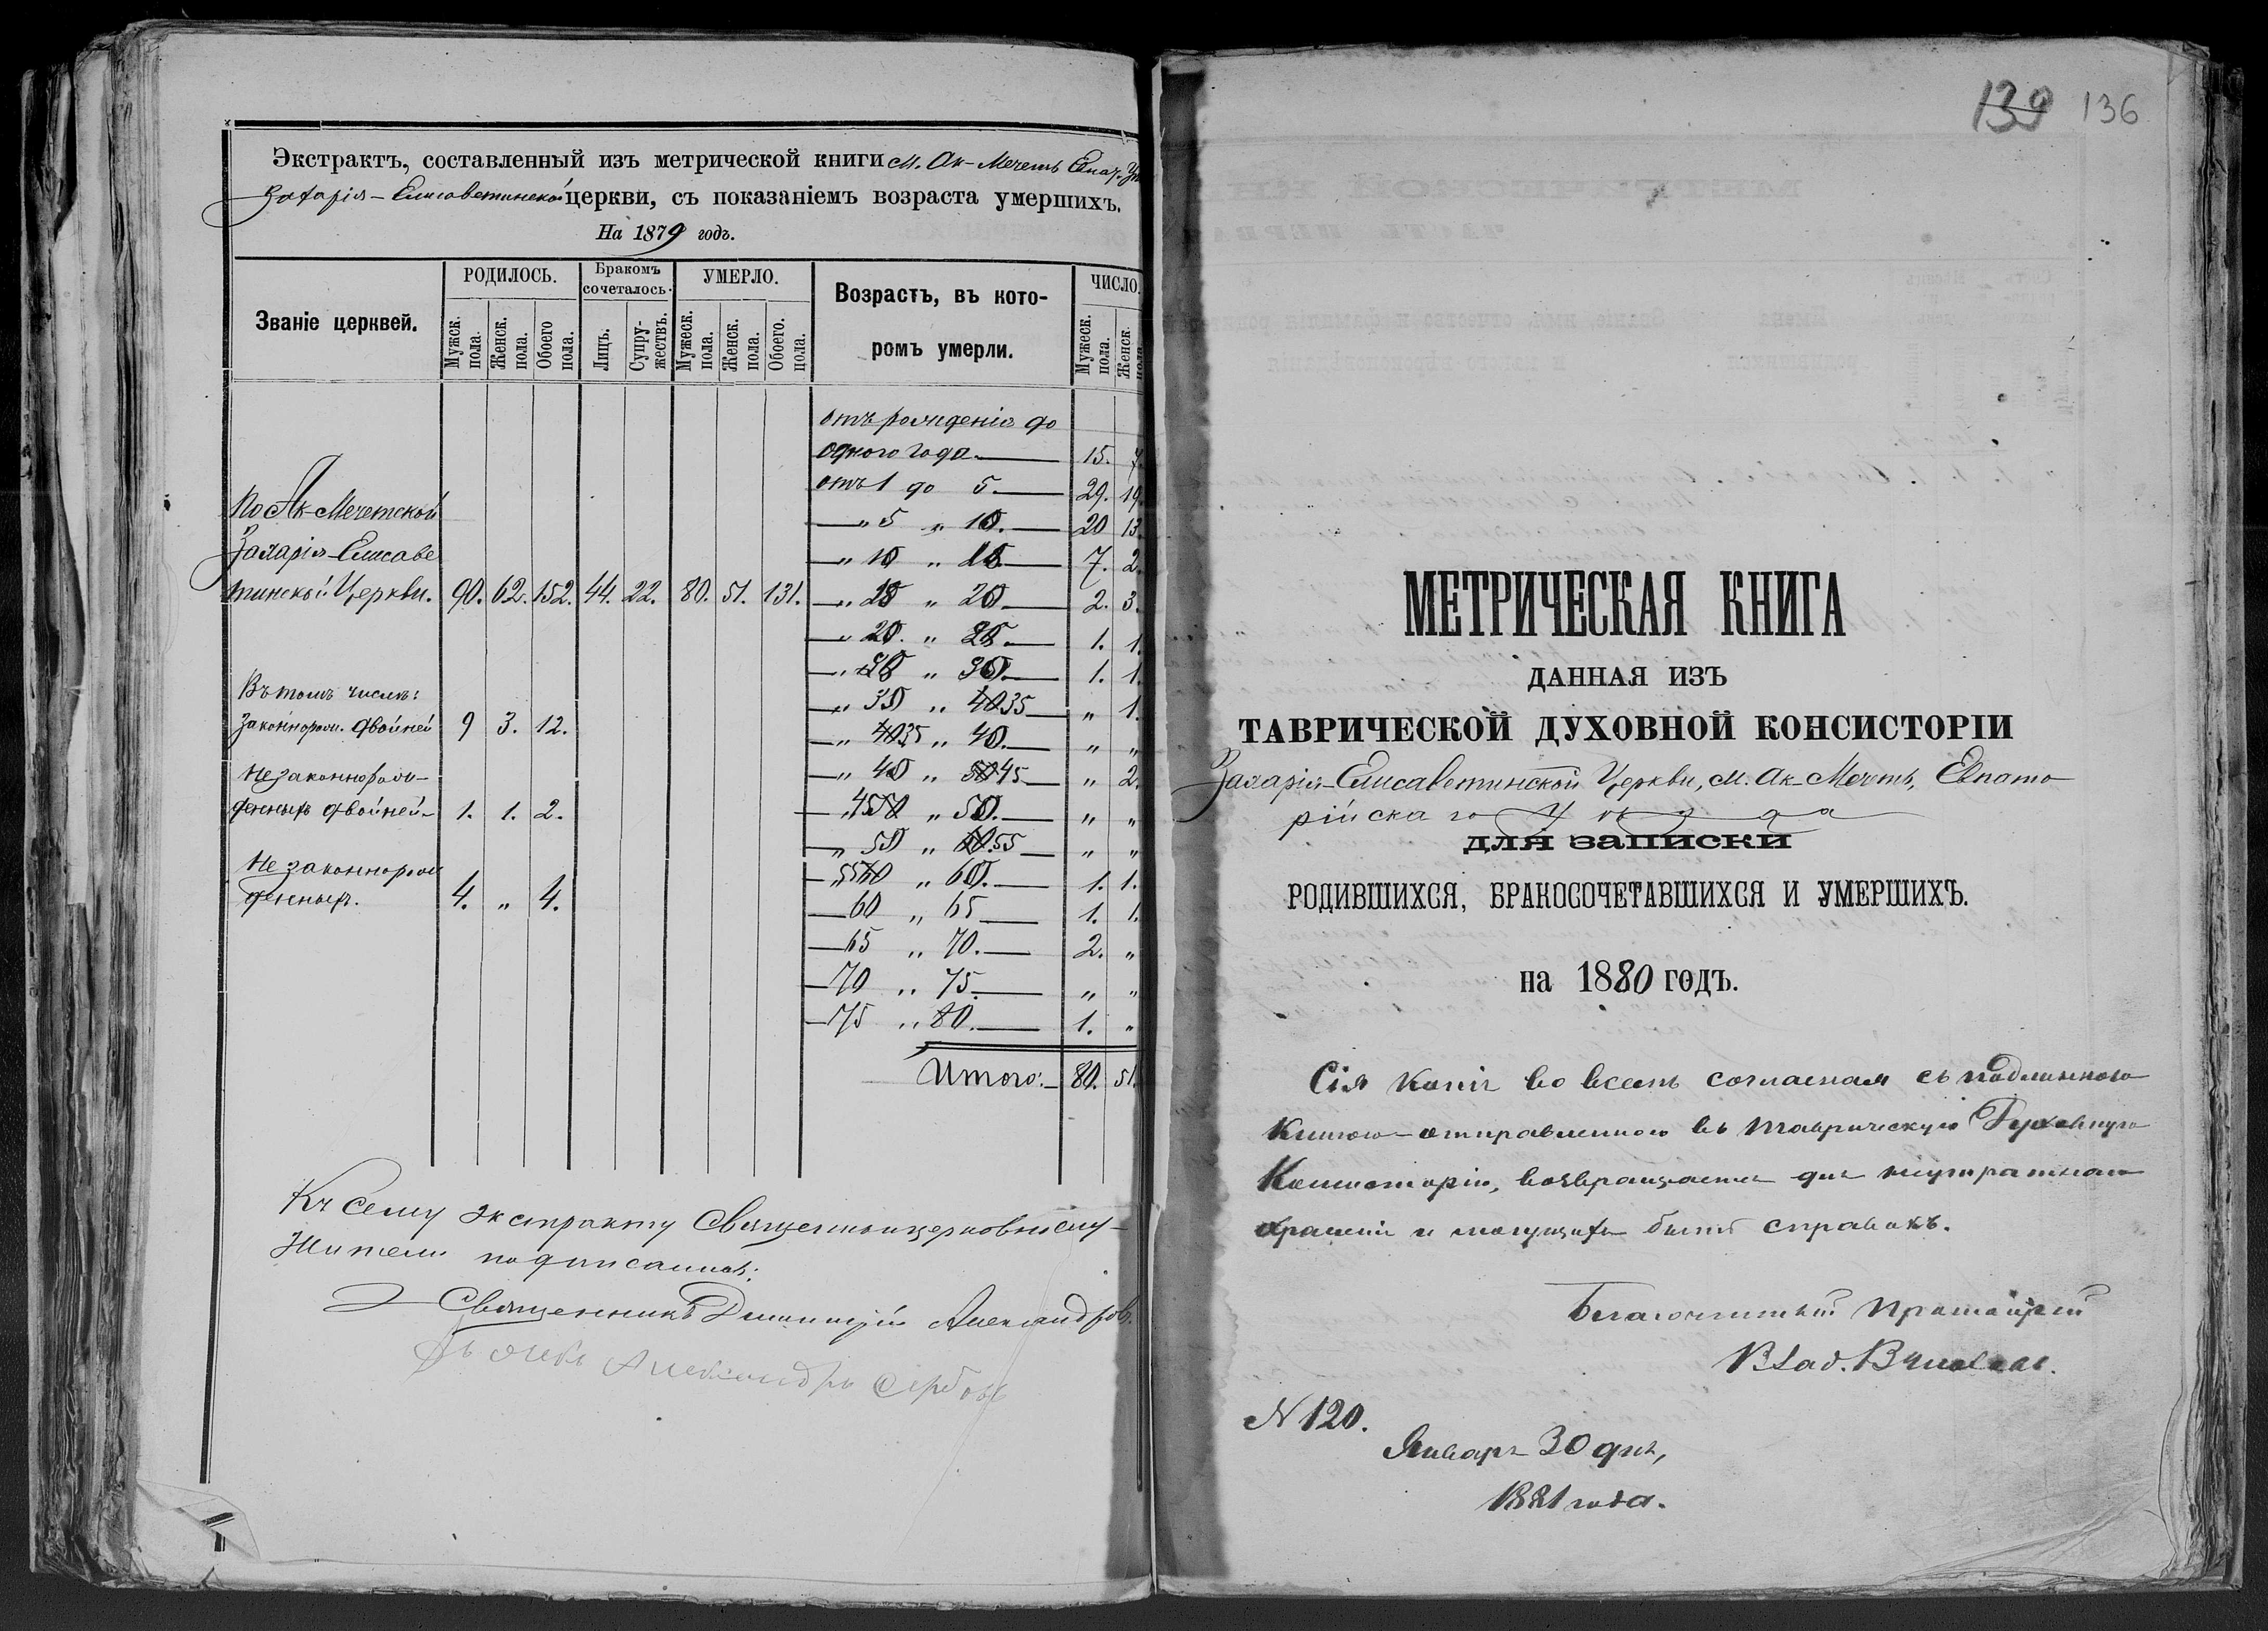 Экстрактъ, составленный изъ метрической книги м. Ак-Мечеть Евпат. У
Захарія-Елисаветинской церкви, съ показаніемъ возраста умершихъ.
На 1879 годъ.
Званіе церквей.
РОДИЛОСЬ.
Мужск. пола.
Женск. пола.
Обоего пола.
Бракомъ сочеталось.
Лицъ.
Супружествъ.
УМЕРЛО.
Мужеск. пола.
Женск. пола.
Обоего. пола.
Возрастъ, въ которомъ умерли.
ЧИСЛО.
Мужеск. пола.
Женск. пола.
отъ рожденія до
одного года. 15. 7.
отъ 1 до 5. 29. 19.
По Ак-Мечетской
„ 5 „ 10. 20 13.
Захарія-Елисаве
„ 10 „ 15. 7. 2.
тинской Церкви. 90. 62. 152. 44. 22. 80. 51. 131. „ 15 „ 20 2. 3.
„ 20. „ 25. 1. 1.
„ 25 „ 30. 1. 1.
Въ томъ числѣ:
„ 30 „ 40 35 „ 1.
законнорож. двойней 9 3. 12.
„ 40 35 „ 40. „ „
Незаконнорож-
„ 40 „ 50 45 „ 2.
денныхъ двойней 1. 1. 2.
„ 45 50 „ 50. „ „
„ 50 „ 60. 55 „ „
Незаконнорож
„ 55 60 „ 60. 1. 1.
денныхъ. 4. „ 4.
60 „ 65 1. 1.
65 „ 70. 2. „
70 „ 75. „ „
75 „ 80. 1. „
Итого: 80. 51.
Къ сему экстракту Священноцерковнослу-
жители подписались:
Священникъ Димитрій Александров.
Александръ Сербовъ
139 136
МЕТРИЧЕСКАЯ КНИГА
ДАННАЯ ИЗЪ
ТАВРИЧЕСКОЙ ДУХОВНОЙ КОНСИСТОРІИ
Захарія-Елисаветинской Церкви, м. Ак-Мечеть, Евпато
рійскаго Уѣзда
ДЛЯ ЗАПИСКИ
РОДИВШИХСЯ, БРАКОСОЧЕТАВШИХСЯ И УМЕРШИХЪ.
на 1880 годъ.
Сія копія во всемъ согласная съ подлинною
книгою отправленною въ Таврическую Духовную
Консисторію, возвращается для неутратнаго
храненія и могущихъ быть справокъ.
Благочинный Протоіерей
Влад.
N 120.
Января 30 дня,
1881 года.